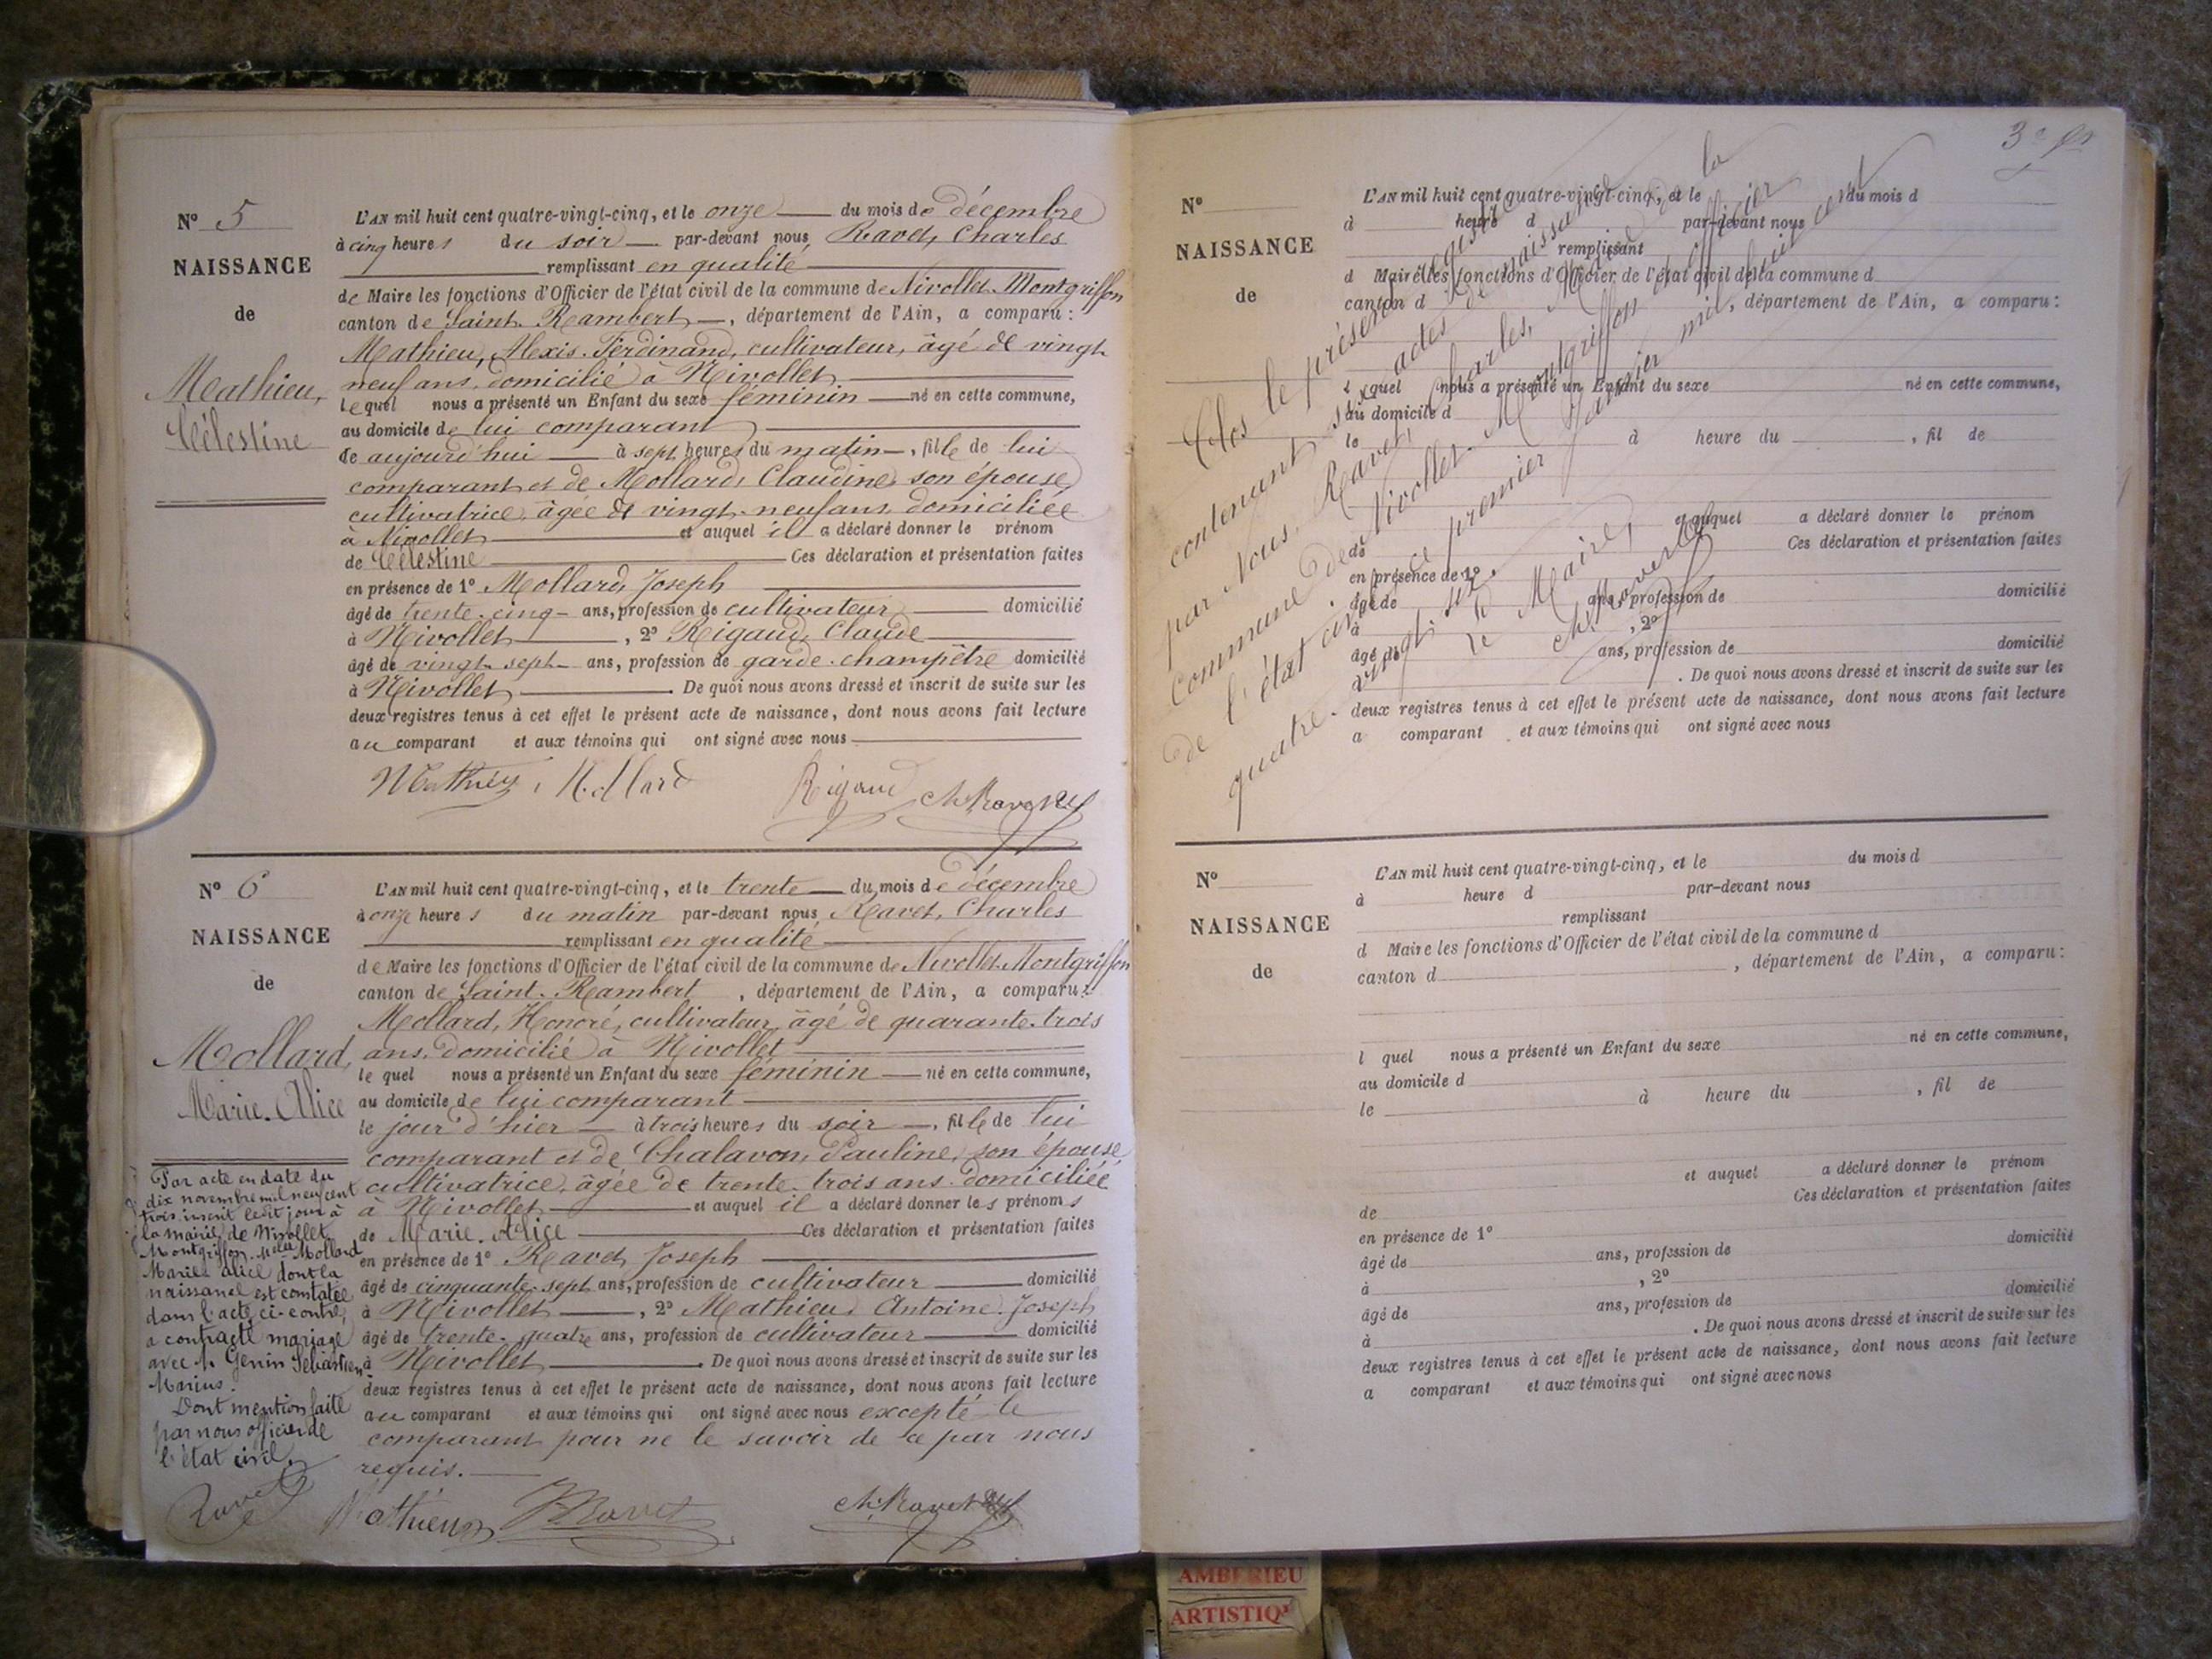 N° 5
NAISSANCE
de
Mathieu,
Célestine
L'AN mil huit cent quatre-vingt-cinq, et le onze du mois de décembre
à cinq heures du soir par-devant nous Ravet, Charles
remplissant en qualité
de Maire les fonctions d'Officier de l'état civil de la commune de Nivollet-Montgriffon
canton de Saint-Rambert, département de l'Ain, a comparu :
Mathieu, Alexis-Ferdinand, cultivateur, âgé de vingt-
neuf ans, domicilié à Nivollet
lequel nous a présenté un Enfant du sexe féminin né en cette commune,
au domicile de lui comparant
le aujourd'hui à sept heures du matin, fille de lui
comparant et de Mollard, Claudine, son épouse,
cultivatrice, âgée de vingt-neuf ans, domiciliée
à Nivollet et auquel il a déclaré donner le prénom
de Célestine Ces déclaration et présentation faites
en présence de 1° Mollard, Joseph
âgé de trente-cinq ans, profession de cultivateur domicilié
à Nivollet, 2° Rigaud, Claude
âgé de vingt-sept ans, profession de garde-champêtre domicilié
à Nivollet. De quoi nous avons dressé et inscrit de suite sur les
deux registres tenus à cet effet le présent acte de naissance, dont nous avons fait lecture
au comparant et aux témoins qui ont signé avec nous
Mathieu Mollard Rigaud Ch. Ravet
N° 6
NAISSANCE
de
Mollard,
Marie-Alice
L'AN mil huit cent quatre-vingt-cinq, et le trente du mois de décembre
à onze heures du matin par-devant nous Ravet, Charles
remplissant en qualité
de Maire les fonctions d'Officier de l'état civil de la commune de Nivollet-Montgriffon
canton de Saint-Rambert, département de l'Ain, a comparu :
Mollard, Honoré, cultivateur, âgé de quarante-trois
ans, domicilié à Nivollet
lequel nous a présenté un Enfant du sexe féminin né en cette commune,
au domicile de lui comparant
le jour d'hier à trois heures du soir, fille de lui
comparant et de Chalavon, Pauline, son épouse,
cultivatrice, âgée de trente-trois ans, domiciliée
à Nivollet et auquel il a déclaré donner les prénoms
de Marie-Alice Ces déclaration et présentation faites
en présence de 1° Ravet, Joseph
âgé de cinquante-sept ans, profession de cultivateur domicilié
à Nivollet, 2° Mathieu, Antoine-Joseph
âgé de trente-quatre ans, profession de cultivateur domicilié
à Nivollet. De quoi nous avons dressé et inscrit de suite sur les
deux registres tenus à cet effet le présent acte de naissance, dont nous avons fait lecture
au comparant et aux témoins qui ont signé avec nous excepté le
comparant pour ne le savoir de ce par nous
requis.
Par acte en date du
dix novembre mil neuf cent
trois inscrit ledit jour à
la mairie de Nivollet
Montgriffon. Melle Mollard
Marie Alice dont la
naissance est constatée
dans l'acte ci-contre,
a contracté mariage
avec M. Genin Sébastien
Marius.
Dont mention faite
par nous officier de
l'état civil.
Ravet Mathieu Ravet Ch. Ravet
3e
N°
NAISSANCE
de
L'AN mil huit cent quatre-vingt-cinq, et le du mois d
à heure d par-devant nous
remplissant
d Maire les fonctions d'Officier de l'état civil de la commune d
canton d, département de l'Ain, a comparu :
l quel nous a présenté un Enfant du sexe né en cette commune,
au domicile d
le à heure du, fil de
et auquel a déclaré donner le prénom
de Ces déclaration et présentation faites
en présence de 1°
âgé de ans, profession de domicilié
à, 2°
âgé de ans, profession de domicilié
à. De quoi nous avons dressé et inscrit de suite sur les
deux registres tenus à cet effet le présent acte de naissance, dont nous avons fait lecture
a comparant et aux témoins qui ont signé avec nous
Clos le présent registre
contenant six actes de naissance
par Nous, Ravet, Charles, Maire de la
commune de Nivollet-Montgriffon et officier
de l'état civil ce premier Janvier mil huit cent
quatre-vingt-six.
Le Maire,
Ch. Ravet
N°
NAISSANCE
de
L'AN mil huit cent quatre-vingt-cinq, et le du mois d
à heure d par-devant nous
remplissant
d Maire les fonctions d'Officier de l'état civil de la commune d
canton d, département de l'Ain, a comparu :
l quel nous a présenté un Enfant du sexe né en cette commune,
au domicile d
le à heure du, fil de
et auquel a déclaré donner le prénom
de Ces déclaration et présentation faites
en présence de 1°
âgé de ans, profession de domicilié
à, 2°
âgé de ans, profession de domicilié
à. De quoi nous avons dressé et inscrit de suite sur les
deux registres tenus à cet effet le présent acte de naissance, dont nous avons fait lecture
a comparant et aux témoins qui ont signé avec nous
AMBERIEU
ARTISTIQ